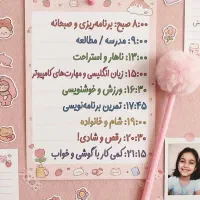 ۸:۰۰ صبح: برنامه‌ریزی و صبحانه
۹:۰۰: مدرسه / مطالعه
۱۳:۰۰: ناهار و استراحت
۱۵:۰۰: زبان انگلیسی و مهارت‌های کامپیوتر
۱۶:۳۰: ورزش و خوشنویسی
۱۷:۴۵: تمرین برنامه‌نویسی
۱۹:۰۰: شام و خانواده
۲۰:۳۰: رقص و شادی!
۲۱:۱۵: کمی کار با گوشی و خواب